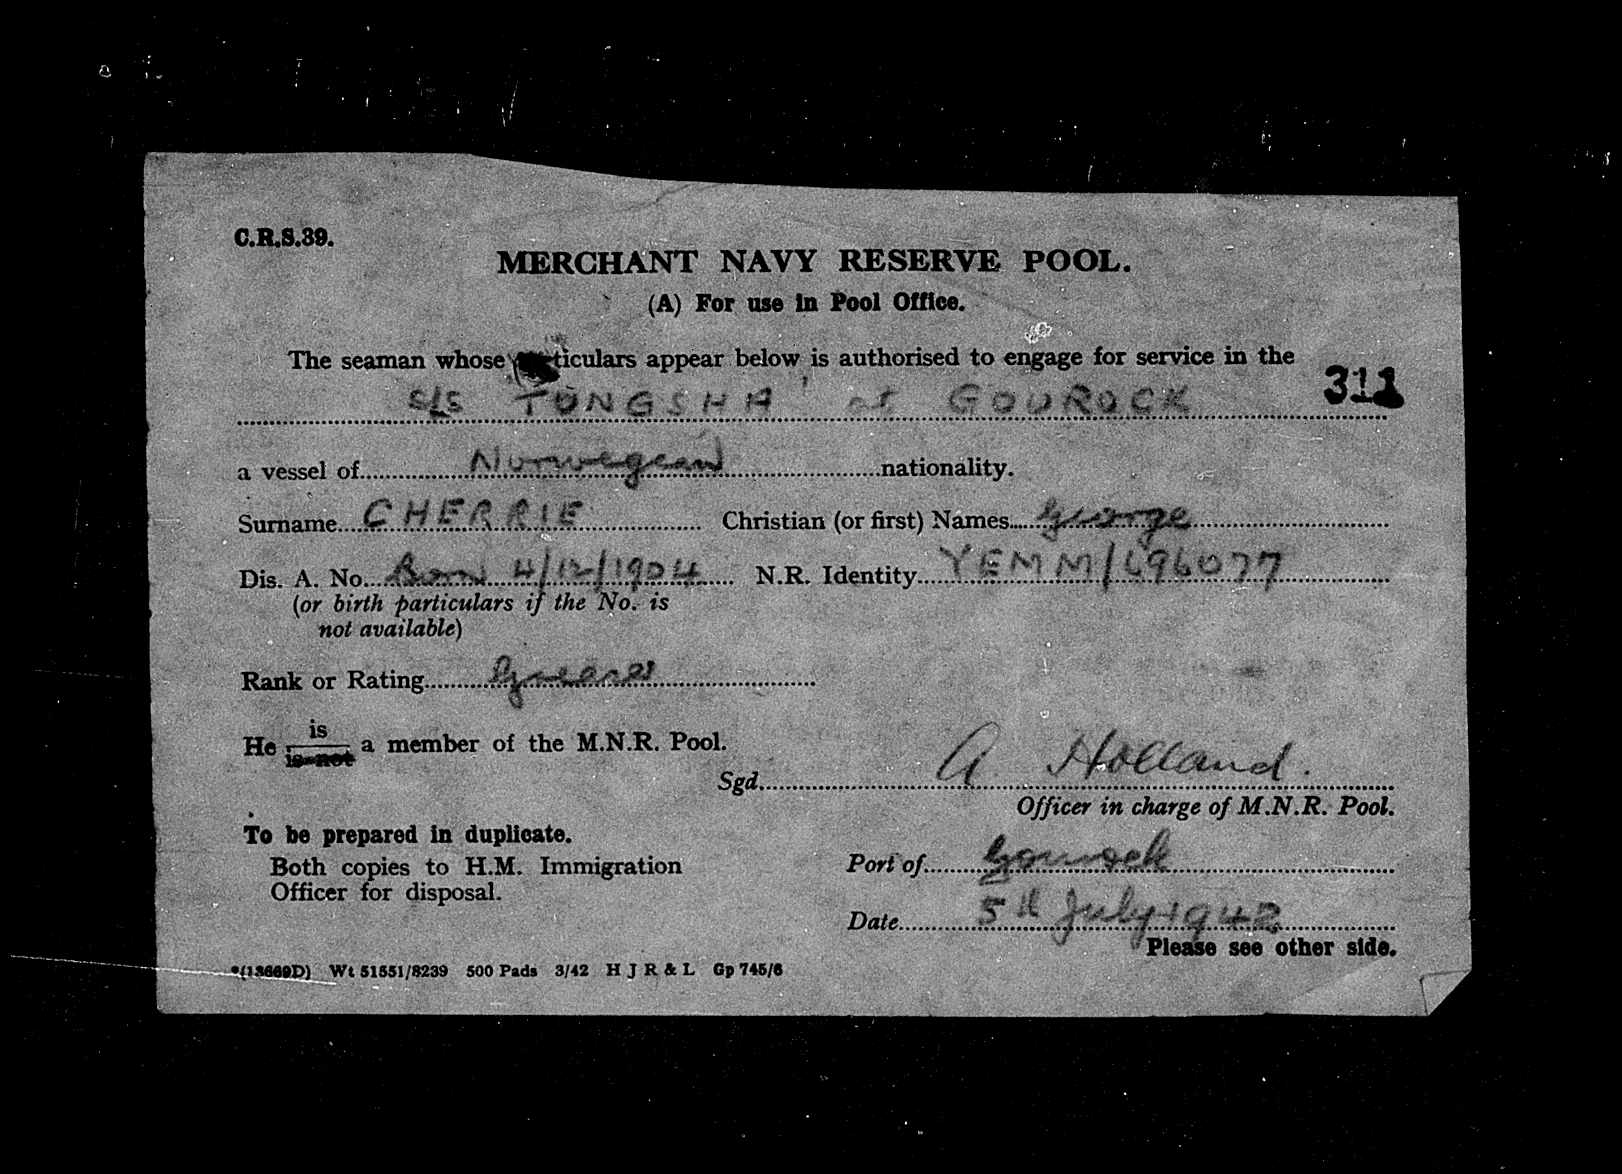 C.R.S.39.
MERCHANT NAVY RESERVE POOL.
(A) For use in Pool Office.
The seaman whose particulars appear below is authorised to engage for service in the
311
S/S TONGSHA at GOUROCK
a vessel of Norwegian nationality.
Surname CHERRIE Christian (or first) Names George
Dis. A. No. Born 4/12/1904 N.R. Identity YEMM/696077
(or birth particulars if the No. is
not available)
Rank or Rating Greaser
is
He is not a member of the M.N.R. Pool.
Sgd. A Holland.
Officer in charge of M.N.R. Pool.
To be prepared in duplicate.
Both copies to H.M. Immigration
Officer for disposal.
Port of Gourock
Date 5th July 1942
Please see other side.
*(13669D) Wt 51551/8239 500 Pads 3/42 H J R & L Gp 745/6